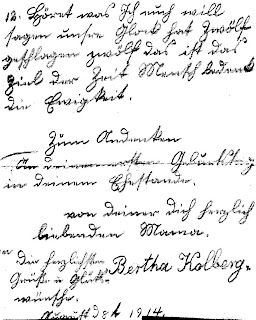 12. Höret was Ich euch will
sagen unsre Glock hat Zwölf
geschlagen zwölf das ist das
Ziel der Zeit Mensch bedenk
die Ewigkeit.
Zum Andenken
An deinem ersten Geburtstag
in deinem Ehestande.
von deiner dich herzlich
liebenden Mama.
Die herzlichsten
Grüße u. Glück-
wünsche. Bertha Kolberg.
August 1914.